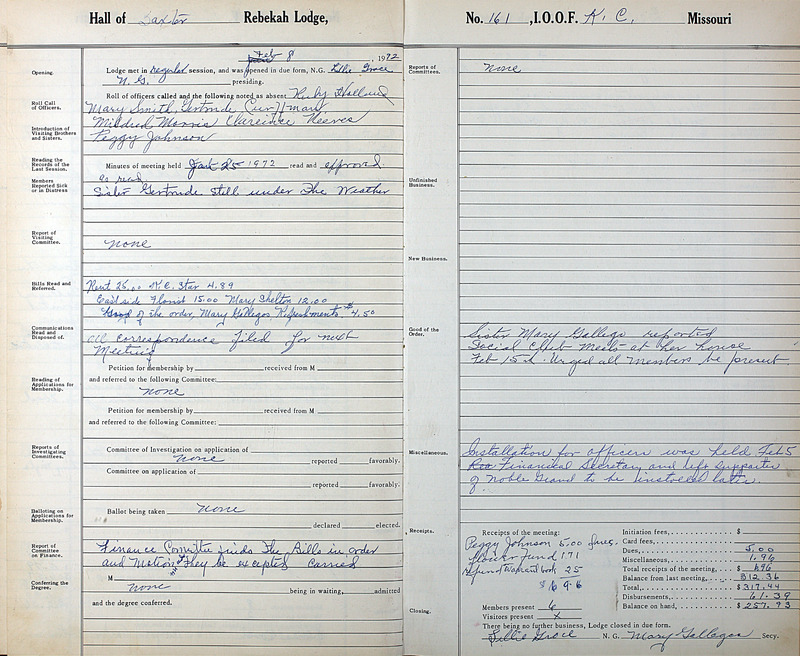 Hall of Daxter Rebekah Lodge,
Feb 8 1972
Opening.
Lodge met in regular session, and was opened in due form, N.G. Lillie Grace
N. G. presiding.
Roll Call of Officers.
Roll of officers called and the following noted as absent Ruby Holland
Mary Smith, Gertrude
Introduction of Visiting Brothers and Sisters.
Mildred Morris Clareince Neeves
Peggy Johnson
Reading the Records of the Last Session.
Minutes of meeting held Jan 25 1972 read and approved
as read
Members Reported Sick or in Distress
Sister Gertrude still under The Weather
Report of Visiting Committee.
none
Bills Read and Referred.
Rent 25.00 K.C. Star 4.89
East side Florist 15.00 Mary Shelton 12.00
Good of the order, Mary Gallegos Refreshments $4.50
Communications Read and Disposed of.
all correspondence filed for next
Meeting
Petition for membership by received from M
and referred to the following Committee:
Reading of Applications for Membership.
none
Petition for membership by received from M
and referred to the following Committee:
Reports of Investigating Committees.
Committee of Investigation on application of
none reported favorably.
Committee on application of
reported, favorably.
Balloting on Applications for Membership.
Ballot being taken none
declared elected.
Report of Committee on Finance.
Finance Committe finds The Bills in order
and Motion They be excepted Carried
Conferring the Degree.
M
none being in waiting, admitted
and the degree conferred.
No. 161, I.O.O.F. K. C. Missouri
Reports of Committees.
none
Unfinished Business.
New Business.
Good of the Order.
Sister Mary Gallego reported
Social Club Meets at her house
Feb 15th. Urged all members be present.
Miscellaneous.
Installation for officers was held Feb 5
Financial Secretary and left supporter
of Noble Grand to be installed latter.
Receipts.
Receipts of the meeting:
Peggy Johnson 5.00 dues.
Flower Fund 171
Warrant book 25
$ 6.96
Initiation fees, $
Card fees,
Dues, 5.00
Miscellaneous, 1.96
Total receipts of the meeting, $ 696
Balance from last meeting, 312.36
Total, $ 317.44
Disbursements, 61.39
Balance on hand, $ 257.93
Members present 6
Visitors present x
Closing.
There being no further business, Lodge closed in due form.
Lillie Grace N. G. Mary Gallegos Secy.